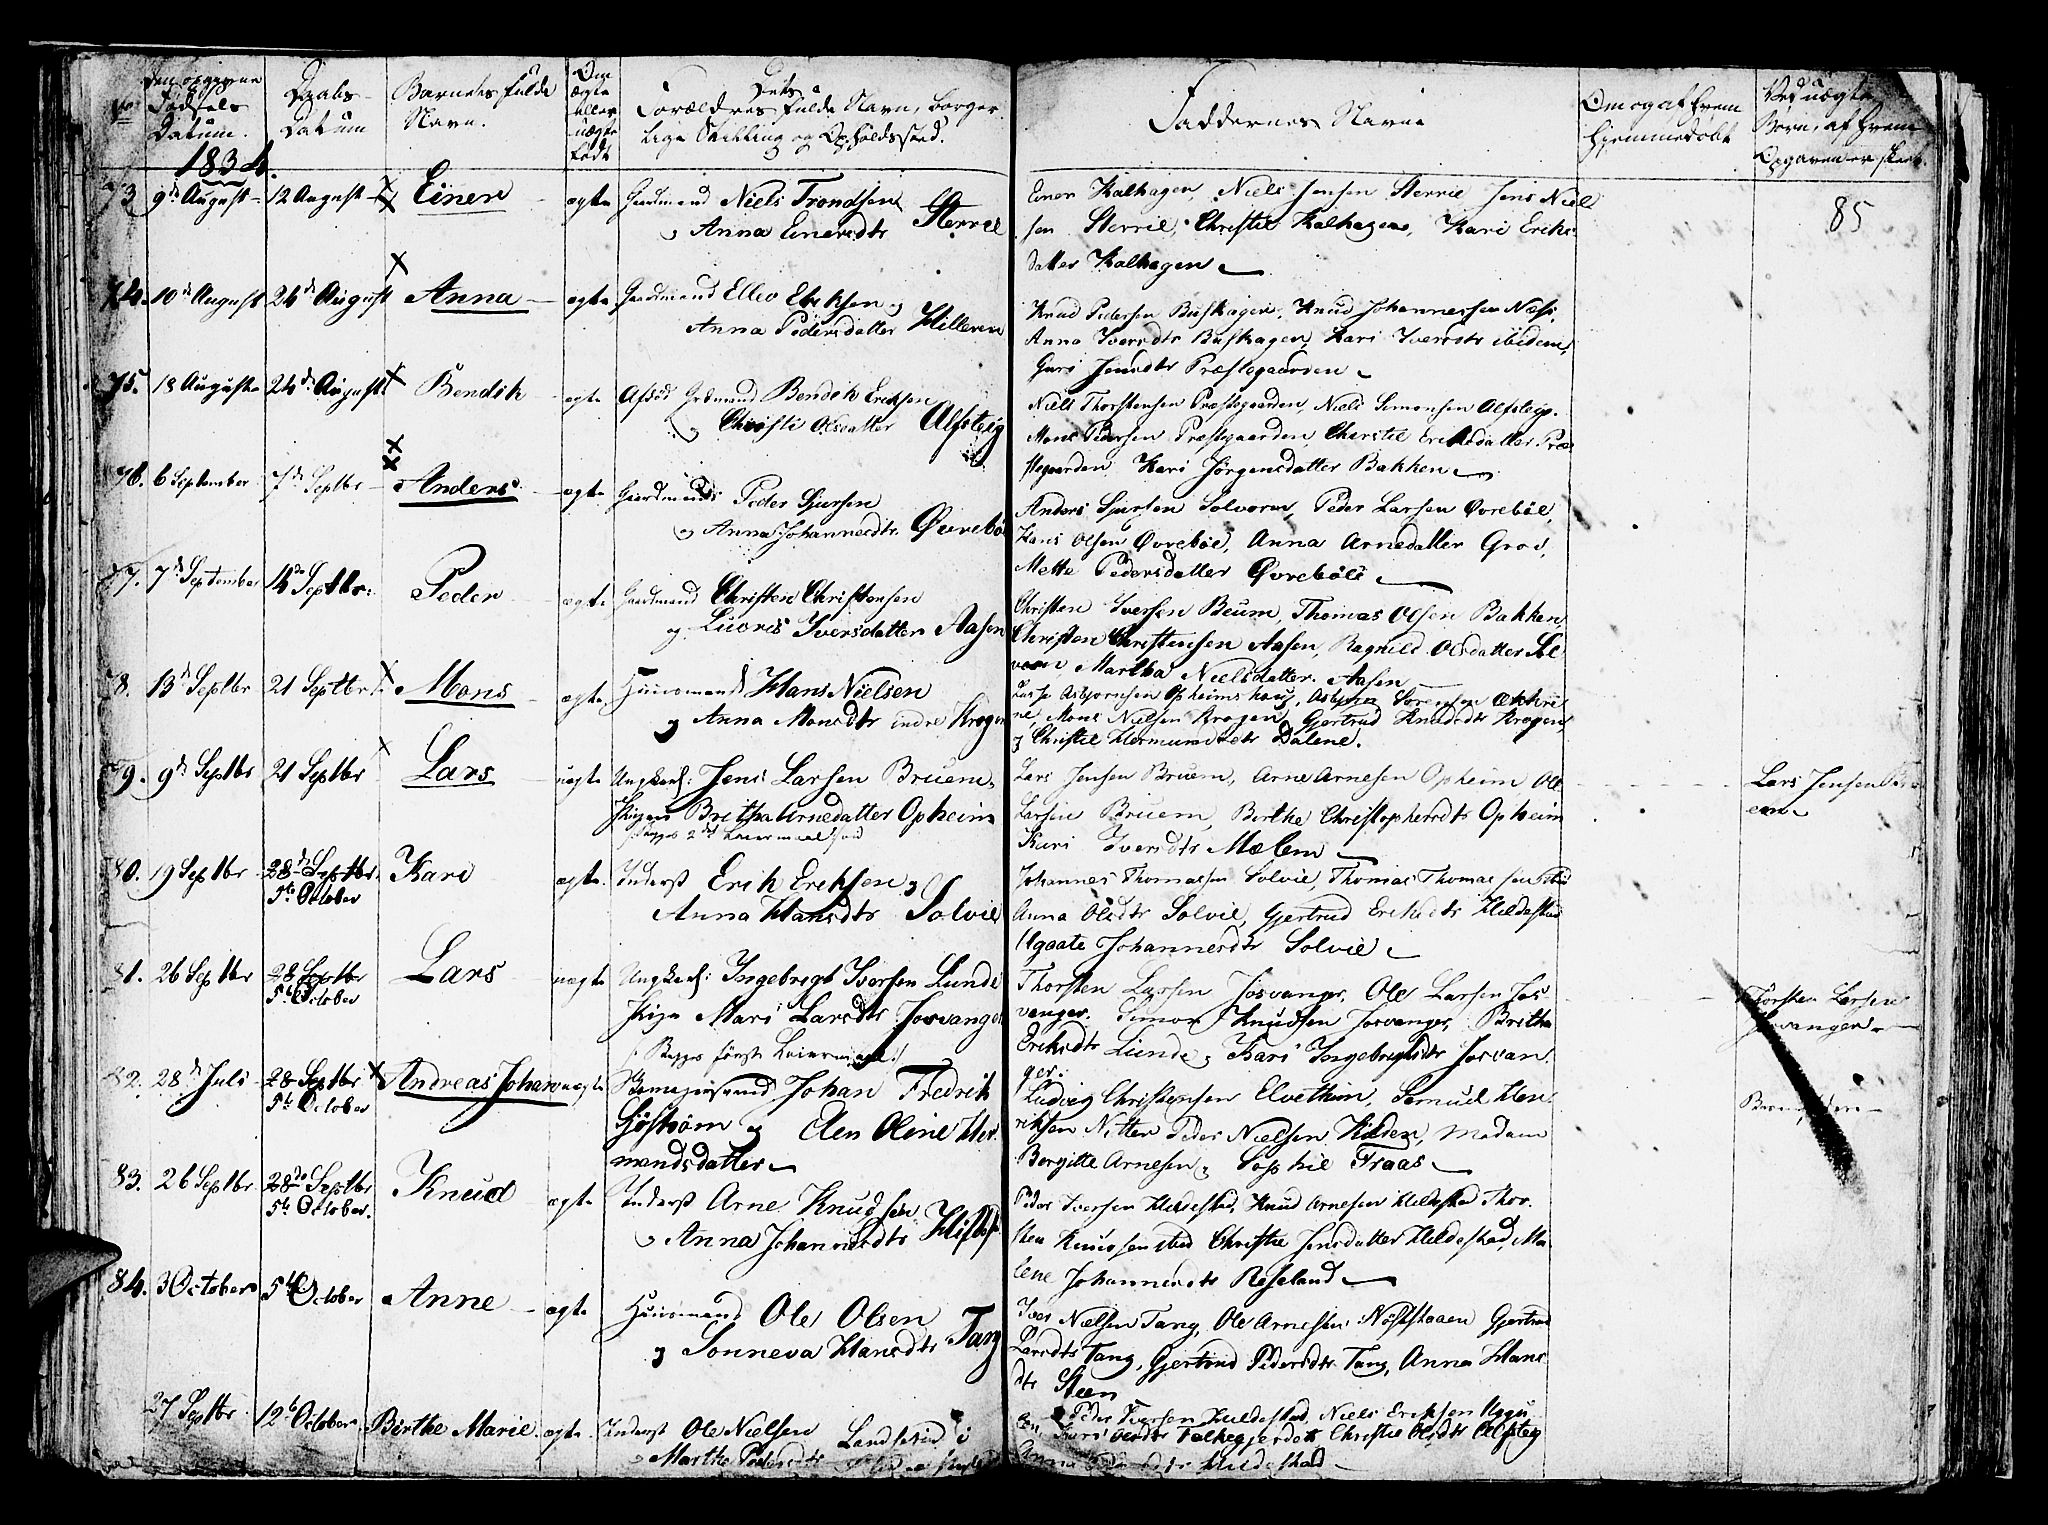 Den opgivne Fødsels Datum.
Daabs-Datum
Barnets fulde Navn.
Om ægte eller uægte født
Dets Forældres fulde Navn, borgerlige Stilling og Opholdssted.
Faddernes Navne
Om og af hvem hjemmedøbt
Ved uægte Børn, af hvem Opgaven er skeet.
1834.
85
73 9de August 12 August Einer ægte Gaardmand Niels Trondsen
Anna Einersdtr Sterrie
Einer Kalhagen, Niels Jensen Sterrie Jens Niel
sen Sterrie, Christie Kalhagen, Kari Eriks
datter Kalhagen
74. 10de August 24de August Anna ægte Gaardmand Ellev Eriksen
Anna Pedersdatter Hilleren
Knud Pedersen Buskagen, Knud Johannessen Næss,
Anna Iversdtr Buskagen, Kari Iversdtr ibidem,
Guri Jensdtr Præstegaarden
75. 18 August 24de August Bendik ægte Afdød Grdmand Bendik Eriksen
Christi Olsdatter Alfsteig
Niels Thorstensen Præstegaarden, Niels Simonsen Alfsteig.
Mons Pedersen Præstegaarden Cherstie Eriksdatter Præ
stegaarden Kari Jørgensdatter Bakken
76. 6 September 7de Septbr Anders ægte Gaardmand Peder Sjursen
Anna Johannesdtr. Øvrebø
Anders Sjursen Solvorn, Peder Larsen Øvrebøe,
Hans Olsen Øvrebøe, Anna Arnedatter Groe,
Mette Pedersdatter Øvrebøe
77. 7de September 14de Septbr: Peder ægte Gaardmand Christen Christensen
og Luvris Iversdatter Aasen
Christen Iversen Beum, Thomas Olsen Bakken,
Christen Christensen Aasen, Ragnild Olsdatter Sol
vorn, Martha Nielsdatter Aasen
78. 13de Septbr 21 Septbr Mons ægte Huusmand Hans Nielsen
og Anna Monsdtr indre Krogen
Lasse Asbjørnsen Opheimshaug, Asbjørn Sørensen
ne, Mons Nielsen Krogen, Gjertrud Knudsdtr Krogen,
og Christie Hermundsdtr Dalene.
79. 9de Septbr 21 Septbr Lars uægte Ungkarl: Jens Larsen Bruem,
Pigen Britha Arnedatter Opheim
Begges 2det Leiermaal
Lars Jensen Bruem, Arne Arnesen Opheim Ole
Larsen Bruem, Berthe Christophersdtr Opheim
Kari Iversdtr Mælem
Lars Jensen Bru
em
80. 19 Septbr 28de Septbr. Kari ægte. Inderst Erik Eriksen og
5te October
Anna Hansdtr Solvie
Johannes Thomassen Solvie, Thomas Thomassen ibid
Anna Olsdtr Solvie, Gjertrud Eriksdtr Hildestad
Agaate Johannesdtr Solvie
81. 26 Septbr 28 Septbr Lars uægte Ungkarl: Ingebregt Iversen Lunde
5te October
Pige Mari Larsdtr Josvanger
Begges første Leiermaal
Thorsten Larsen Josvanger, Ole Larsen Jos
vanger. Simon Knudsen Josvanger, Britha
Eriksdtr Lunde, Kari Ingebregtsdtr Josvan
ger.
Thorsten Larsen
Josvanger
82. 28de Juli 28 Septbr Andreas Johan uægte Johan Fredrik
5te October
Sjöström og Elen Oline Her
mandsdatter
Ludvig Christensen Elvethun, Samuel Hen
riksen Nitter Peder Nielsen Hilden, Madam
Bergitte Arnesen, Sophie Traas
83. 26 Septbr. 28de Septbr Knud ægte Inderst Arne Knudsen
5te October.
Anna Johannesdtr
Peder Iversen Hildestad, Knud Arnesen Hildestad Thor.
sten Knudsen ibid Christie Jensdatter Hildestad, Ma
lene Johannesdtr Røseland
84. 3 October 5te October Anne ægte Huusmand Ole Olsen
og Sonneva Hansdtr Tang
Iver Nielsen Tang, Ole Arnesen Gjertrud
Larsdtr Tang, Gjertrud Pedersdtr Tang, Anna Hans
dtr Steen
27 Septbr 12te October Birthe Marie ægte. Inderst Ole Nielsen
Marthe Pedersdtr
Peder Iversen Hildestad, Niels Eriksen
Kari Olsdtr Falkegjerdet Christie Olsdtr Alfsteig
Anna Hildestad